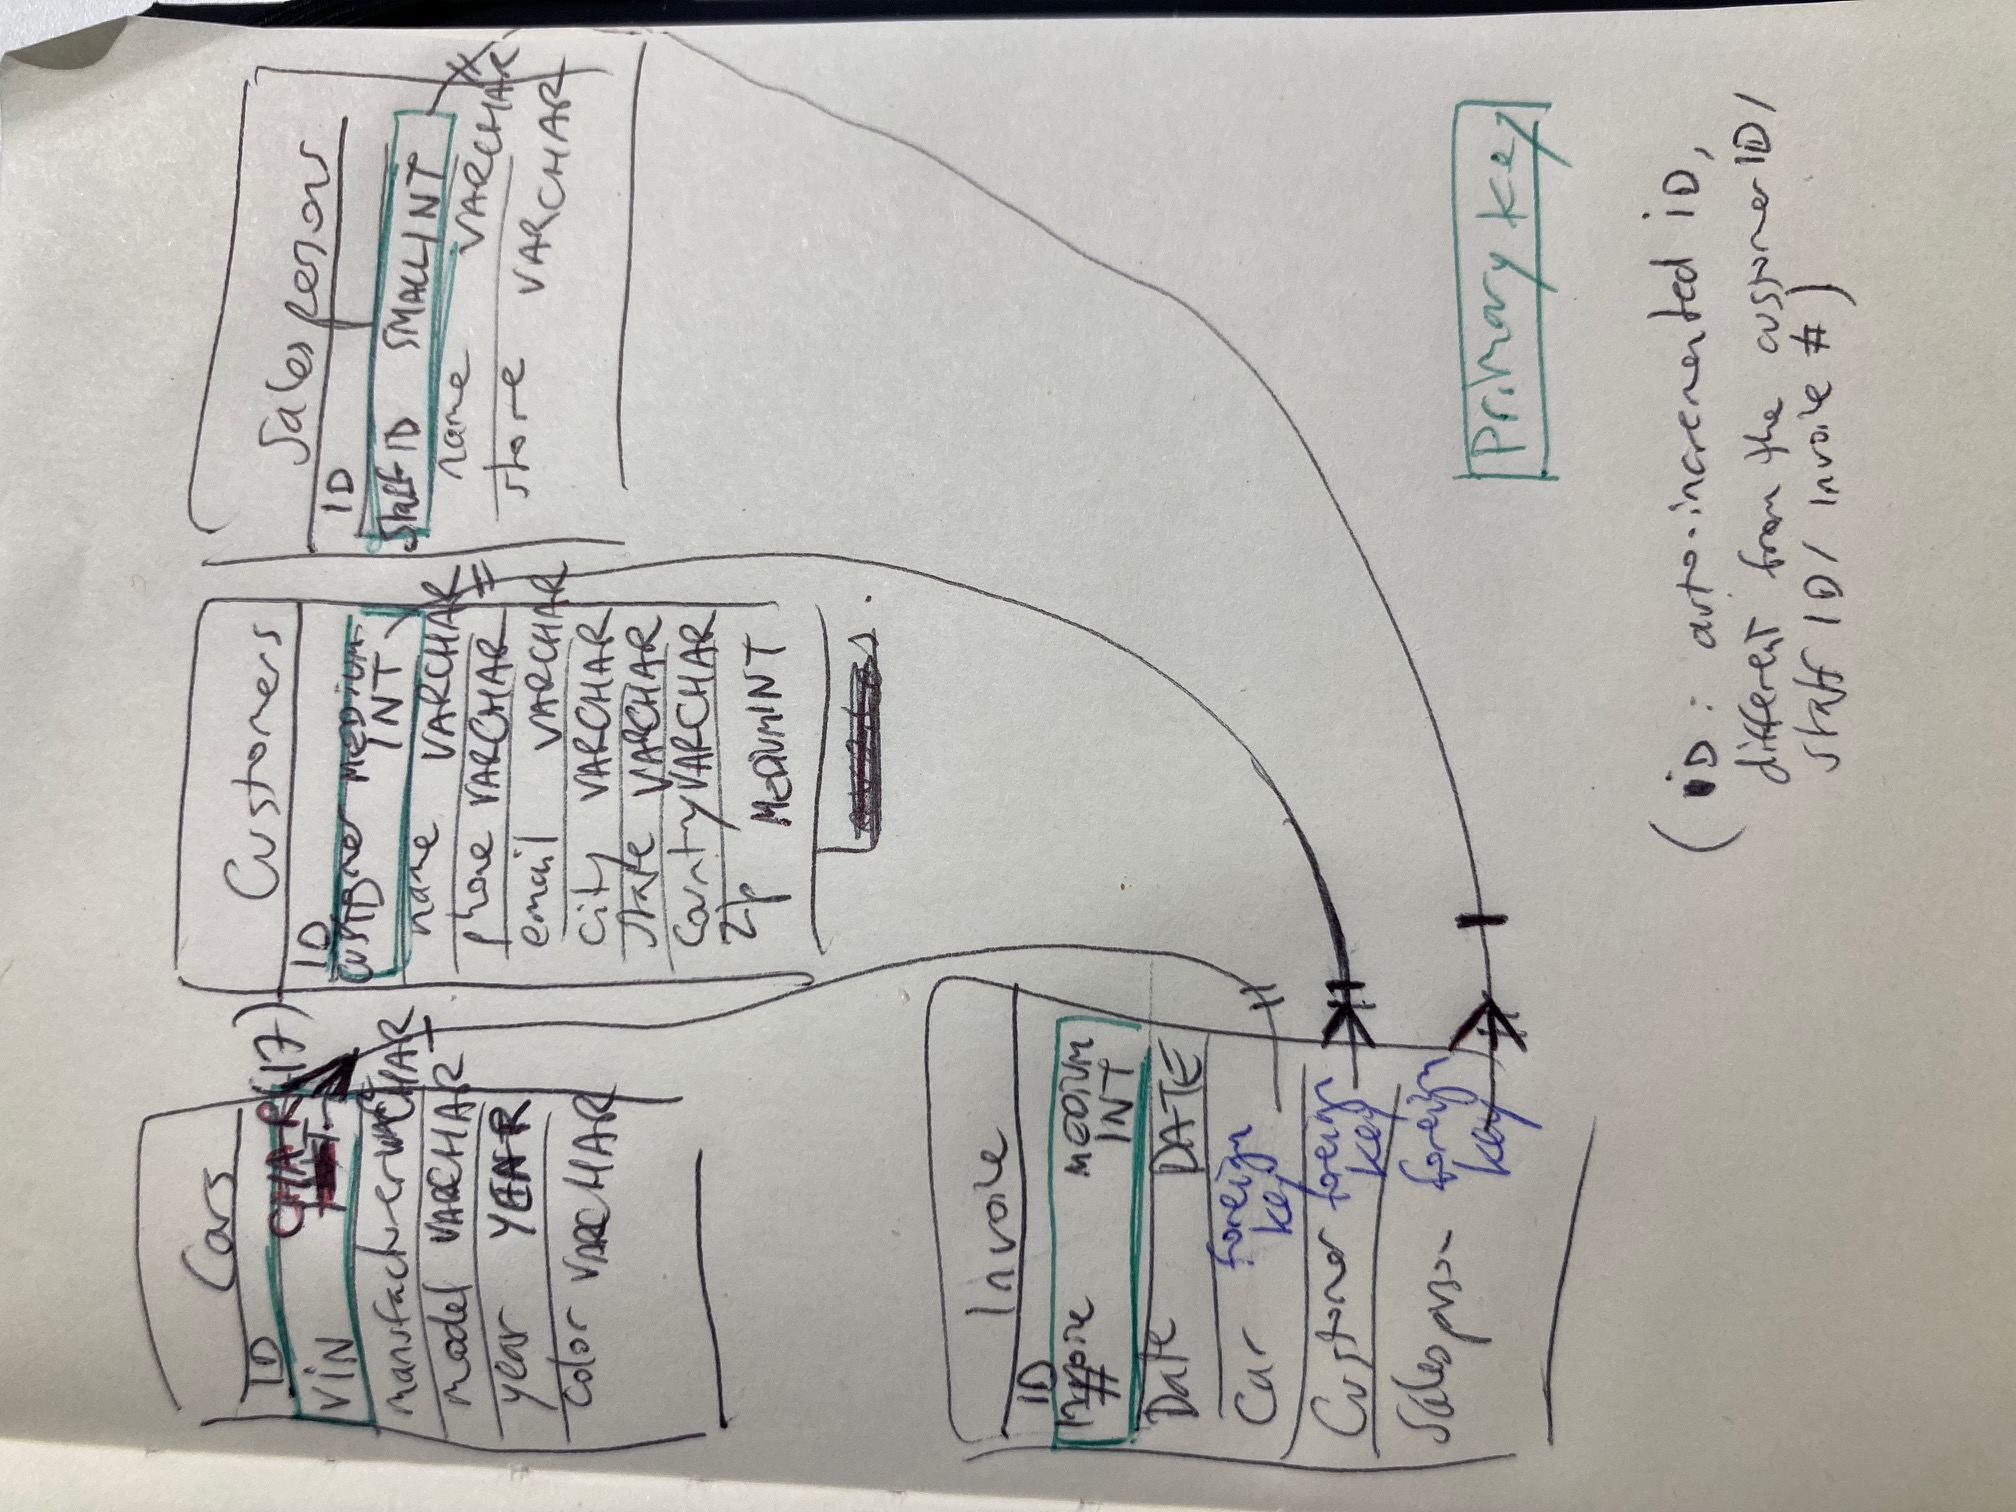 Cars
ID
VIN CHAR(17)
manufacturer VARCHAR
model VARCHAR
year YEAR
color VARCHAR
Customers
ID
Customer MEDIUM-
INT
name VARCHAR
phone VARCHAR
email VARCHAR
city VARCHAR
state VARCHAR
country VARCHAR
Zip MEDIUMINT
Salespersons
ID
Staff ID SMALLINT
name VARCHAR
store VARCHAR
Invoice
ID
Invoice MEDIUM
# INT
Date DATE
Car foreign
key
Customer foreign
key
Salesperson foreign
key
Primary key
(ID: auto-incremented ID,
different from the customer ID/
staff ID/ invoice #)